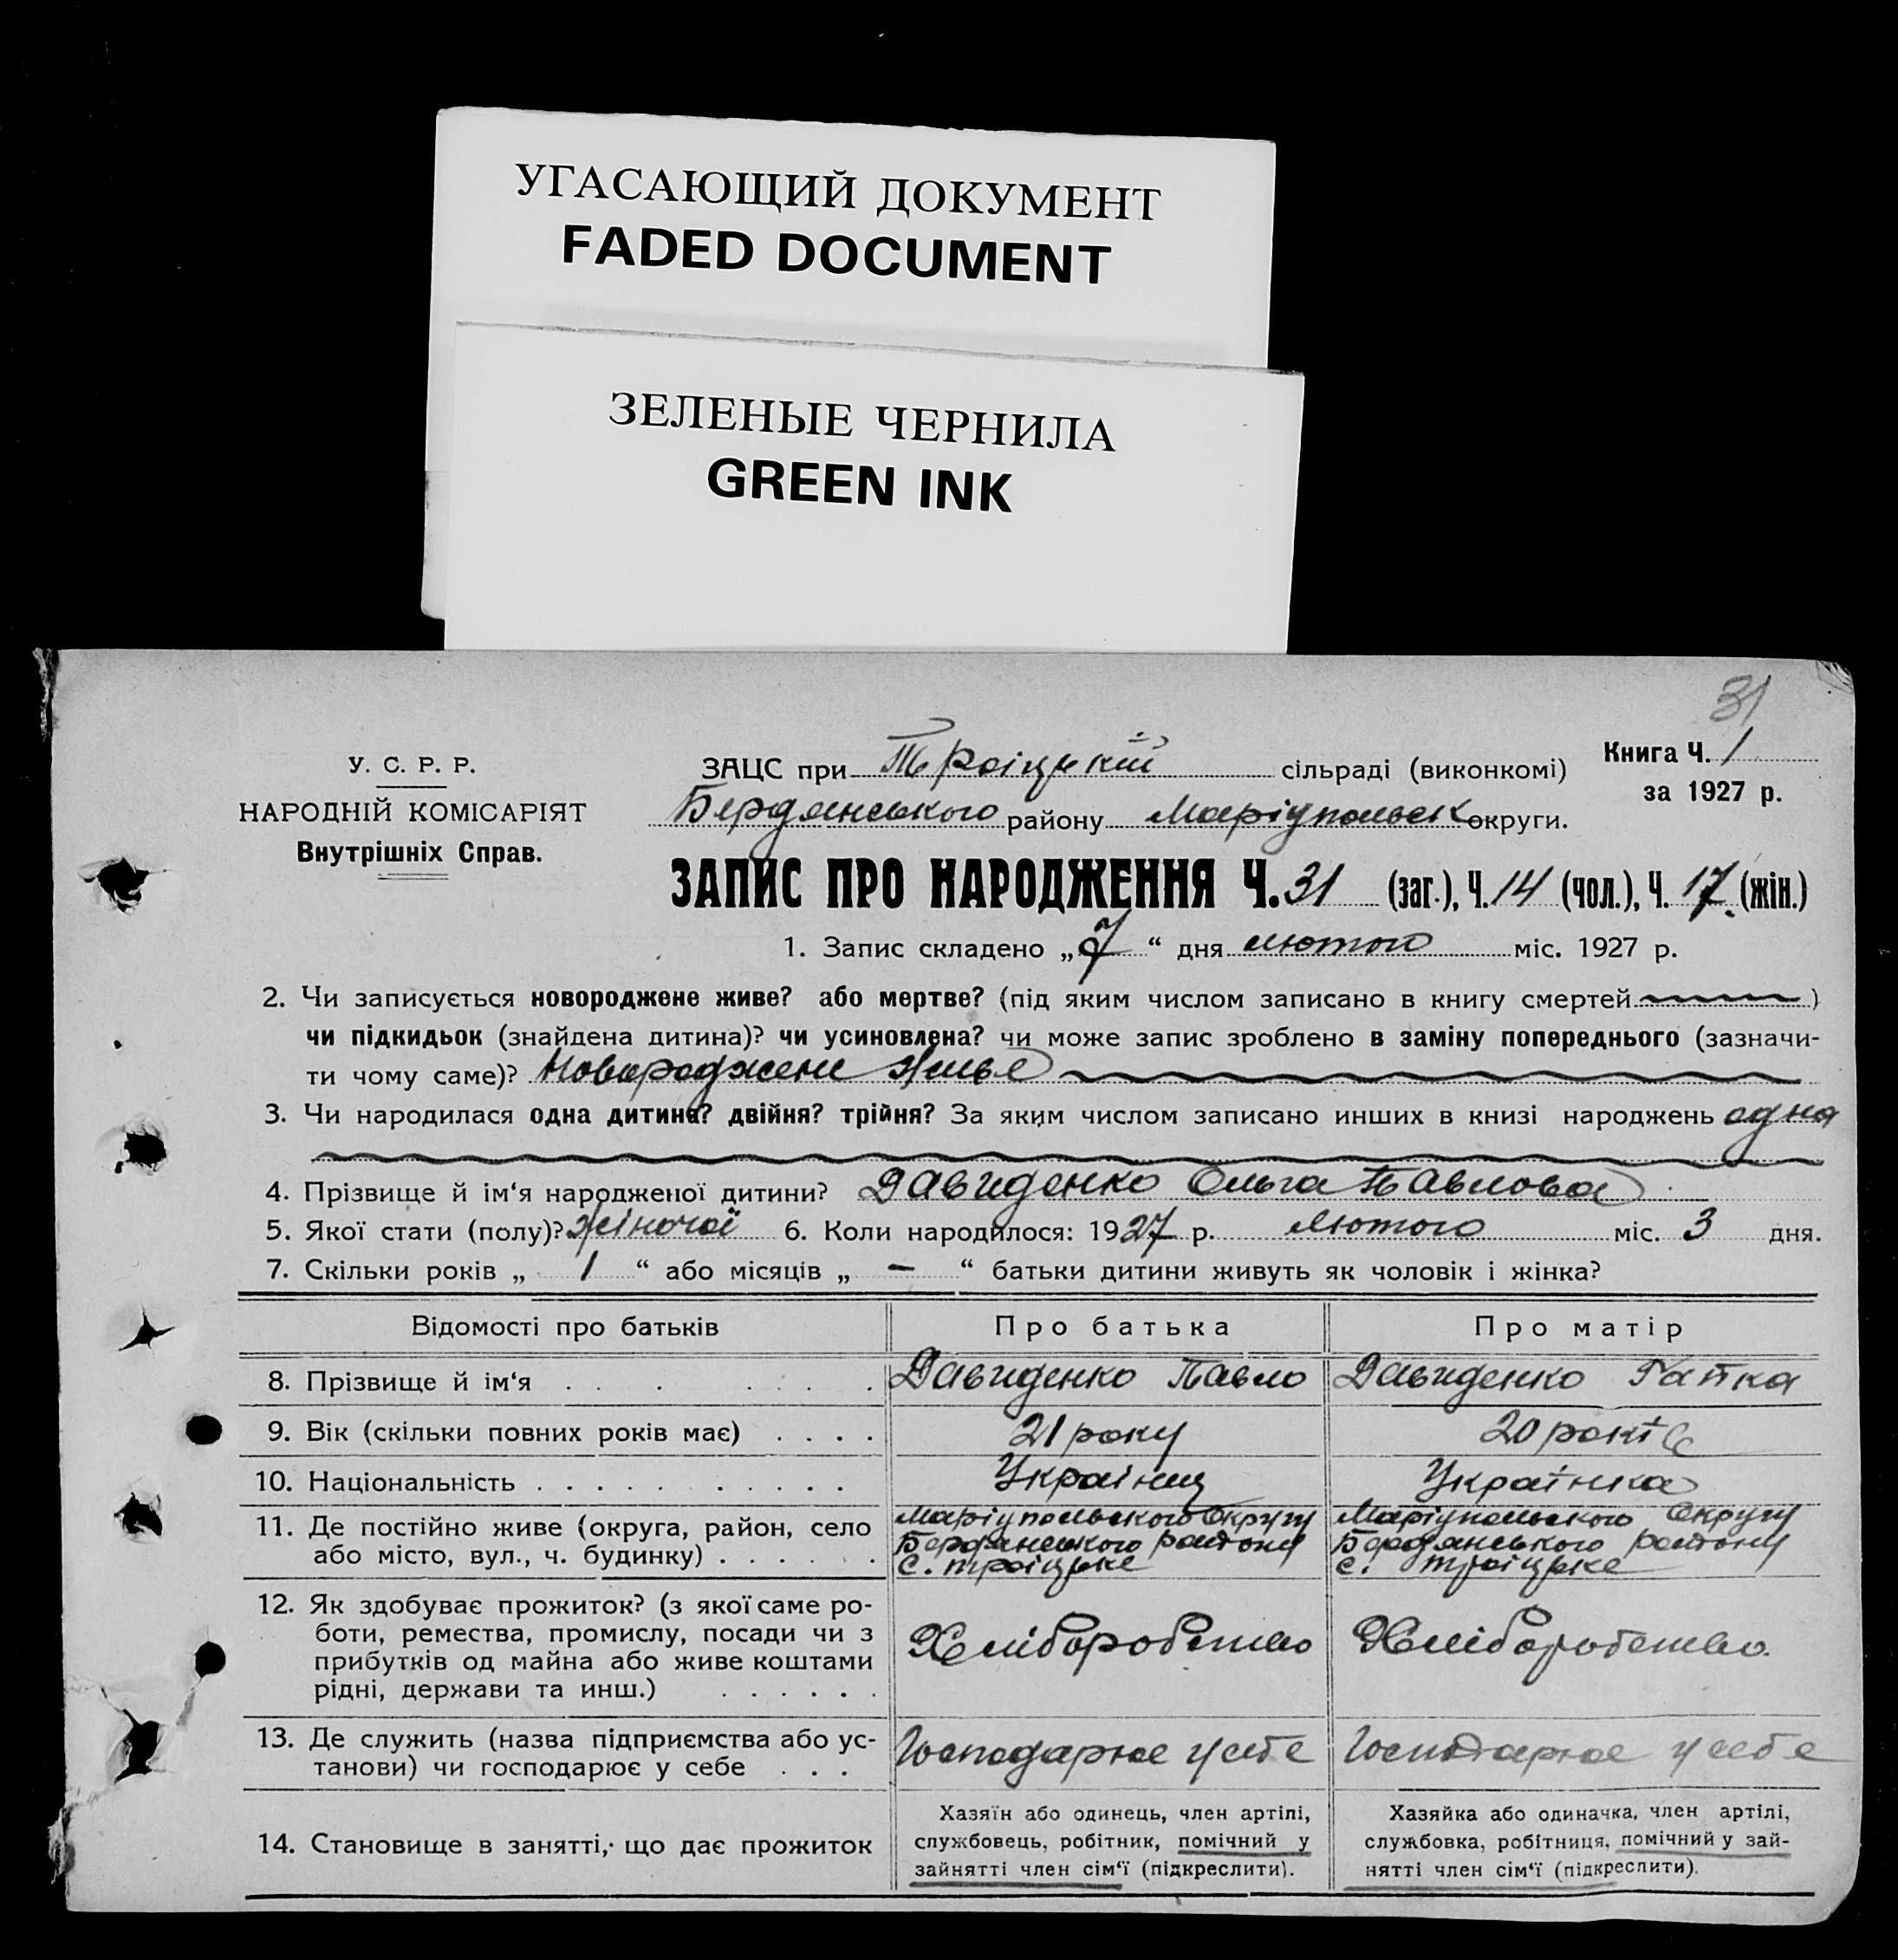 УГАСАЮЩИЙ ДОКУМЕНТ
FADED DOCUMENT
ЗЕЛЕНЫЕ ЧЕРНИЛА
GREEN INK
31
У. С. Р. Р.
НАРОДНІЙ КОМІСАРІЯТ
Внутрішніх Справ.
ЗАЦС при Троіцькій сільраді (виконкомі)
Книга Ч. 1
за 1927 р.
Бердянського району Маріупольськ округи.
ЗАПИС ПРО НАРОДЖЕННЯ Ч. 31 (заг.), Ч. 14 (чол.), Ч. 17 (жін.)
1. Запис складено „7“ дня лютого міс. 1927 р.
2. Чи записується новороджене живе? або мертве? (під яким числом записано в книгу смертей )
чи підкидьок (знайдена дитина)? чи усиновлена? чи може запис зроблено в заміну попереднього (зазначи-
ти чому саме)? Новороджене живе
3. Чи народилася одна дитина? двійня? трійня? За яким числом записано инших в книзі народжень одна
4. Прізвище й ім‘я народженої дитини? Давиденко Ольга Павлова
5. Якої стати (полу)? жіночої 6. Коли народилося: 1927 р. лютого міс. 3 дня.
7. Скільки років „ 1 “ або місяців „ — “ батьки дитини живуть як чоловік і жінка?
Відомості про батьків Про батька Про матір
8. Прізвище й ім‘я . . . . . . . Давиденко Павло Давиденко Гапка
9. Вік (скільки повних років має) . . . . 21 року 20 років
10. Національність . . . . . . . . . . . Украінець Украінка
11. Де постійно живе (округа, район, село
або місто, вул., ч. будинку) . . . . . .
Маріупольского Округу
Бердянського району
с. Троіцьке
Маріупольского Округу
Бердянського району
с. Троіцьке
12. Як здобуває прожиток? (з якої саме ро-
боти, ремества, промислу, посади чи з
прибутків од майна або живе коштами
рідні, держави та инш.) . . . . . .
Хліборобство
Хліборобство.
13. Де служить (назва підприємства або ус-
танови) чи господарює у себе . . .
Господарює у себе
Господарює у себе
14. Становище в занятті, що дає прожиток
Хазяїн або одинець, член артілі,
службовець, робітник, помічний у
зайнятті член сім‘ї (підкреслити).
Хазяйка або одиначка, член артілі,
службовка, робітниця, помічний у зай-
нятті член сім‘ї (підкреслити).